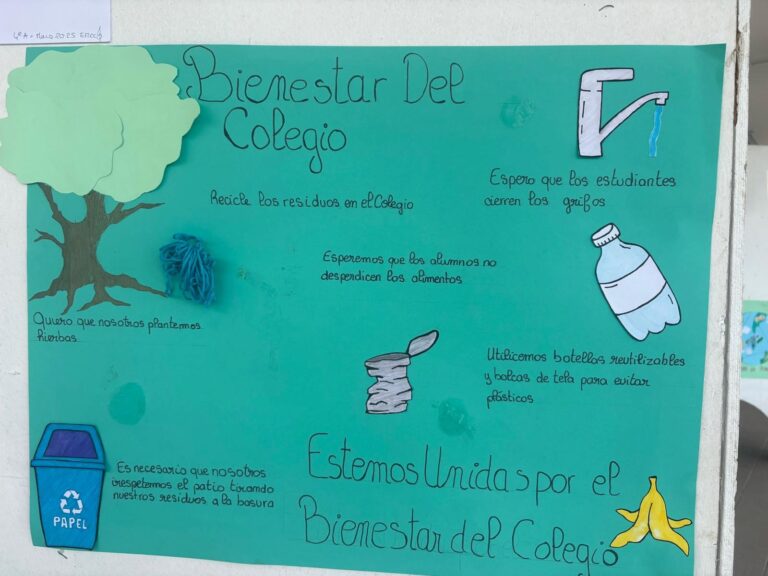 4º A - Marzo 2025
Bienestar Del
Colegio
Espero que los estudiantes
cierren los grifos
Recicle los residuos en el Colegio
Esperemos que los alumnos no
desperdicen los alimentos
Quiero que nosotros plantemos
hierbas
Utilicemos botellas reutilizables
y bolcas de tela para evitar
plásticos
Es necesario que nosotros
respetemos el patio tirando
nuestros residuos a la basura
PAPEL
Estemos Unidas por el
Bienestar del Colegio